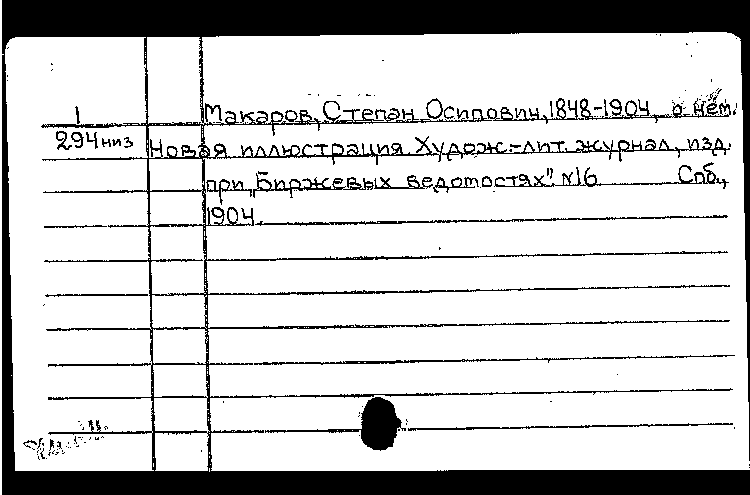 1
294низ
Макаров, Степан Осипович, 1848-1904, о нем.
Новая иллюстрация. Худож.-лит. журнал, изд.
при „Биржевых ведомостях". N16 Спб.,
1904.